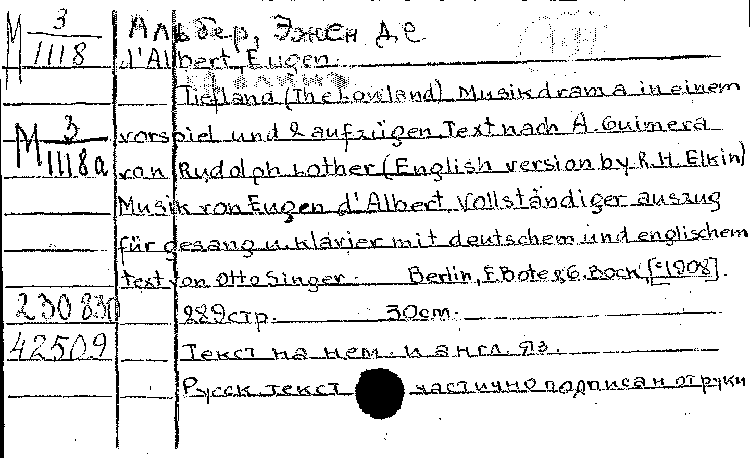 М 3/1118 Альбер, Эжен де
d'Albert, Eugen.
Tiefland (The Lowland) Musikdrama in einem
М 3/1118a vorspiel und 2 aufzügen Text nach A. Guimera
von Rudolph Lother (English version by R.H. Elkin)
Musik von Eugen d'Albert. Vollständiger auszug
für gesang u. klavier mit deutschem und englischem
text von Otto Singer. Berlin, E. Bote & G. Bock, [c1908].
230830 229стр. 30cm.
42509 Текст на нем. и англ. яз.
Русск текст частично подписан от руки